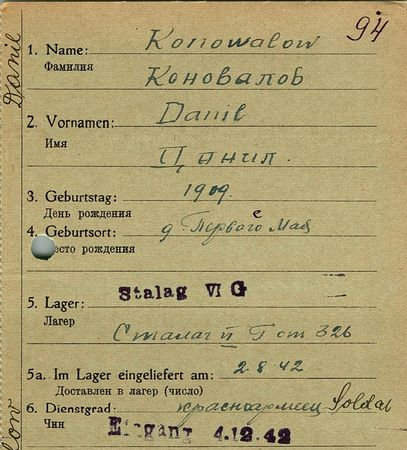 94
Danil
1. Name: Konowalow
Фамилия
Коновалов
2. Vornamen: Danil
Имя
Данил.
3. Geburtstag: 1909.
День рождения
4. Geburtsort: д Первое Мая
есто рождения
Stalag VI G
5. Lager:
Лагерь
Сталаг от 326
5a. Im Lager eingeliefert am: 2 8 42
Доставлен в лагерь (число)
6. Dienstgrad: красноармеец Soldat
Чин
Eingang 4.12.42
low